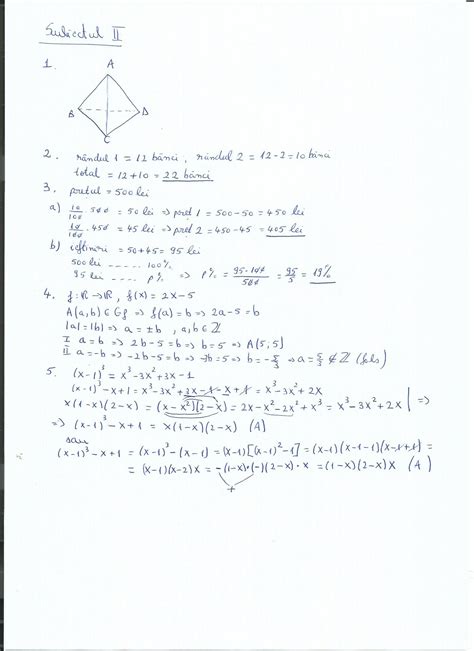 Subiectul II
1.
A
B
D
C
2. rândul 1 = 12 bănci, rândul 2 = 12-2=10 bănci
total = 12+10 = 22 bănci
3. prețul = 500 lei
a) 10/100 · 500 = 50 lei => preț 1 = 500-50 = 450 lei
10/100 · 450 = 45 lei => preț 2 = 450-45 = 405 lei
b) ieftiniri = 50+45 = 95 lei
500 lei ..... 100%
95 lei ..... p% => p% = 95·100/500 = 95/5 = 19%
4. f: R → R, f(x) = 2x-5
A(a,b) ∈ Gf => f(a) = b => 2a-5 = b
|a|=|b| => a = ±b, a,b ∈ Z
I a=b => 2b-5=b => b=5 => A(5;5)
II a=-b => -2b-5=b => -3b=5 => b=-5/3 => a=5/3 ∉ Z (fals)
5. (x-1)³ = x³-3x²+3x-1
(x-1)³-x+1 = x³-3x²+3x-1-x+1 = x³-3x²+2x
x(1-x)(2-x) = (x-x²)(2-x) = 2x-x²-2x²+x³ = x³-3x²+2x | =>
=> (x-1)³-x+1 = x(1-x)(2-x) (A)
sau
(x-1)³-x+1 = (x-1)³-(x-1) = (x-1)[(x-1)²-1] = (x-1)(x-1-1)(x-1+1) =
= (x-1)(x-2)x = -(1-x)·(-)(2-x)·x = (1-x)(2-x)x (A)
+